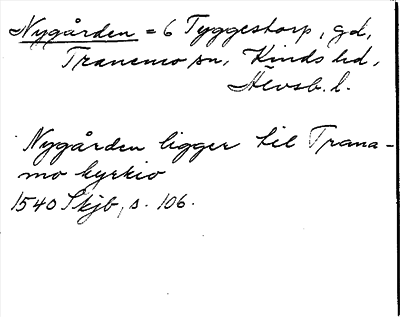 Nygården = 6 Tyggestorp, gd,
Tranemo sn, Kinds hd,
Älvsb. l.
Nygården ligger til Trana-
mo kyrkio
1540 Skjb, s. 106.